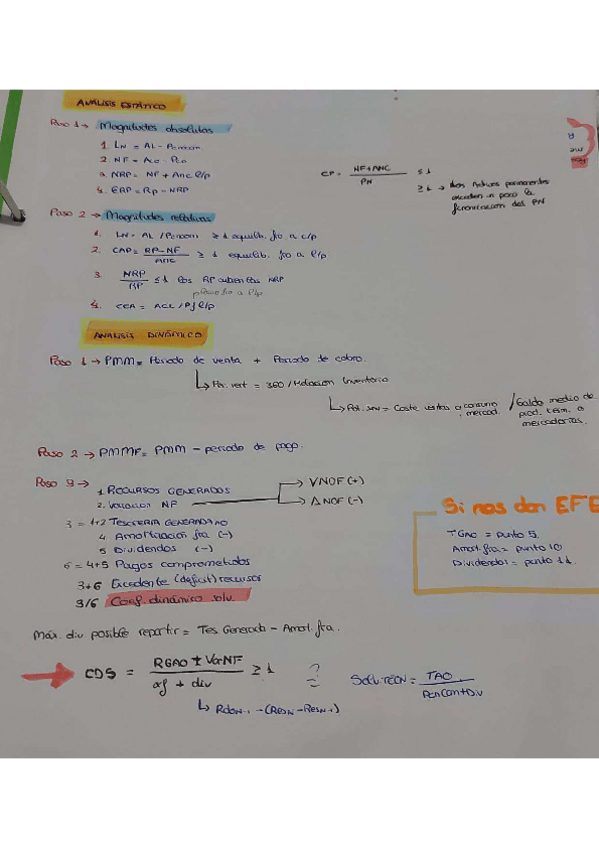 ANÁLISIS ESTÁTICO
Paso 1 → Magnitudes absolutas
1. LN = AL - Pcncom.
2. NF = Aco - Pco
3. NRP = NF + Anc l/p
4. ERP = Rp - NRP
CP = NF+ANC / PN ≤ 1
≥ 1 → los Activos permanentes
exceden a para la
financiación del PN
Paso 2 → Magnitudes relativas
1. LN = AL / Pcncom ≥ 1 equilib. fro a c/p
2. CAP = RP-NF / ANC ≥ 1 equilib. fro a l/p
3. NRP / RP ≤ 1 los RP cubren las NRP
4. CEA = ACL / Pf l/p
ANALISIS DINÁMICO
Paso 1 → PMM = Periodo de venta + Periodo de cobro.
↳ Per. vent = 360 / Rotación Inventario
↳ Rot. inv = Coste ventas o consumo mercad. / Saldo medio de prod. term. o mercaderías.
Paso 2 → PMMF = PMM - periodo de pago.
Paso 3 →
1. RECURSOS GENERADOS
2. Variación NF → ∇NOF (+)
→ ΔNOF (-)
3 = 1+2 TESORERÍA GENERADA AO
4. Amortización fra (-)
5. Dividendos (-)
6 = 4+5 Pagos comprometidos
3+6 Excedente (déficit) recursos
3/6 Coef. dinámico solv.
Si nos dan EFE
TGAO = punto 5.
Amort. fra = punto 10
Dividendos = punto 11.
Máx. div posible repartir = Tes Generada - Amort. fra.
→ CDS = RGAO ± VarNF / af + div ≥ 1 ?
SOLV. TECN = TAO / PcnCom+Div
↳ RdoN-1 - (ResN - ResN-1)